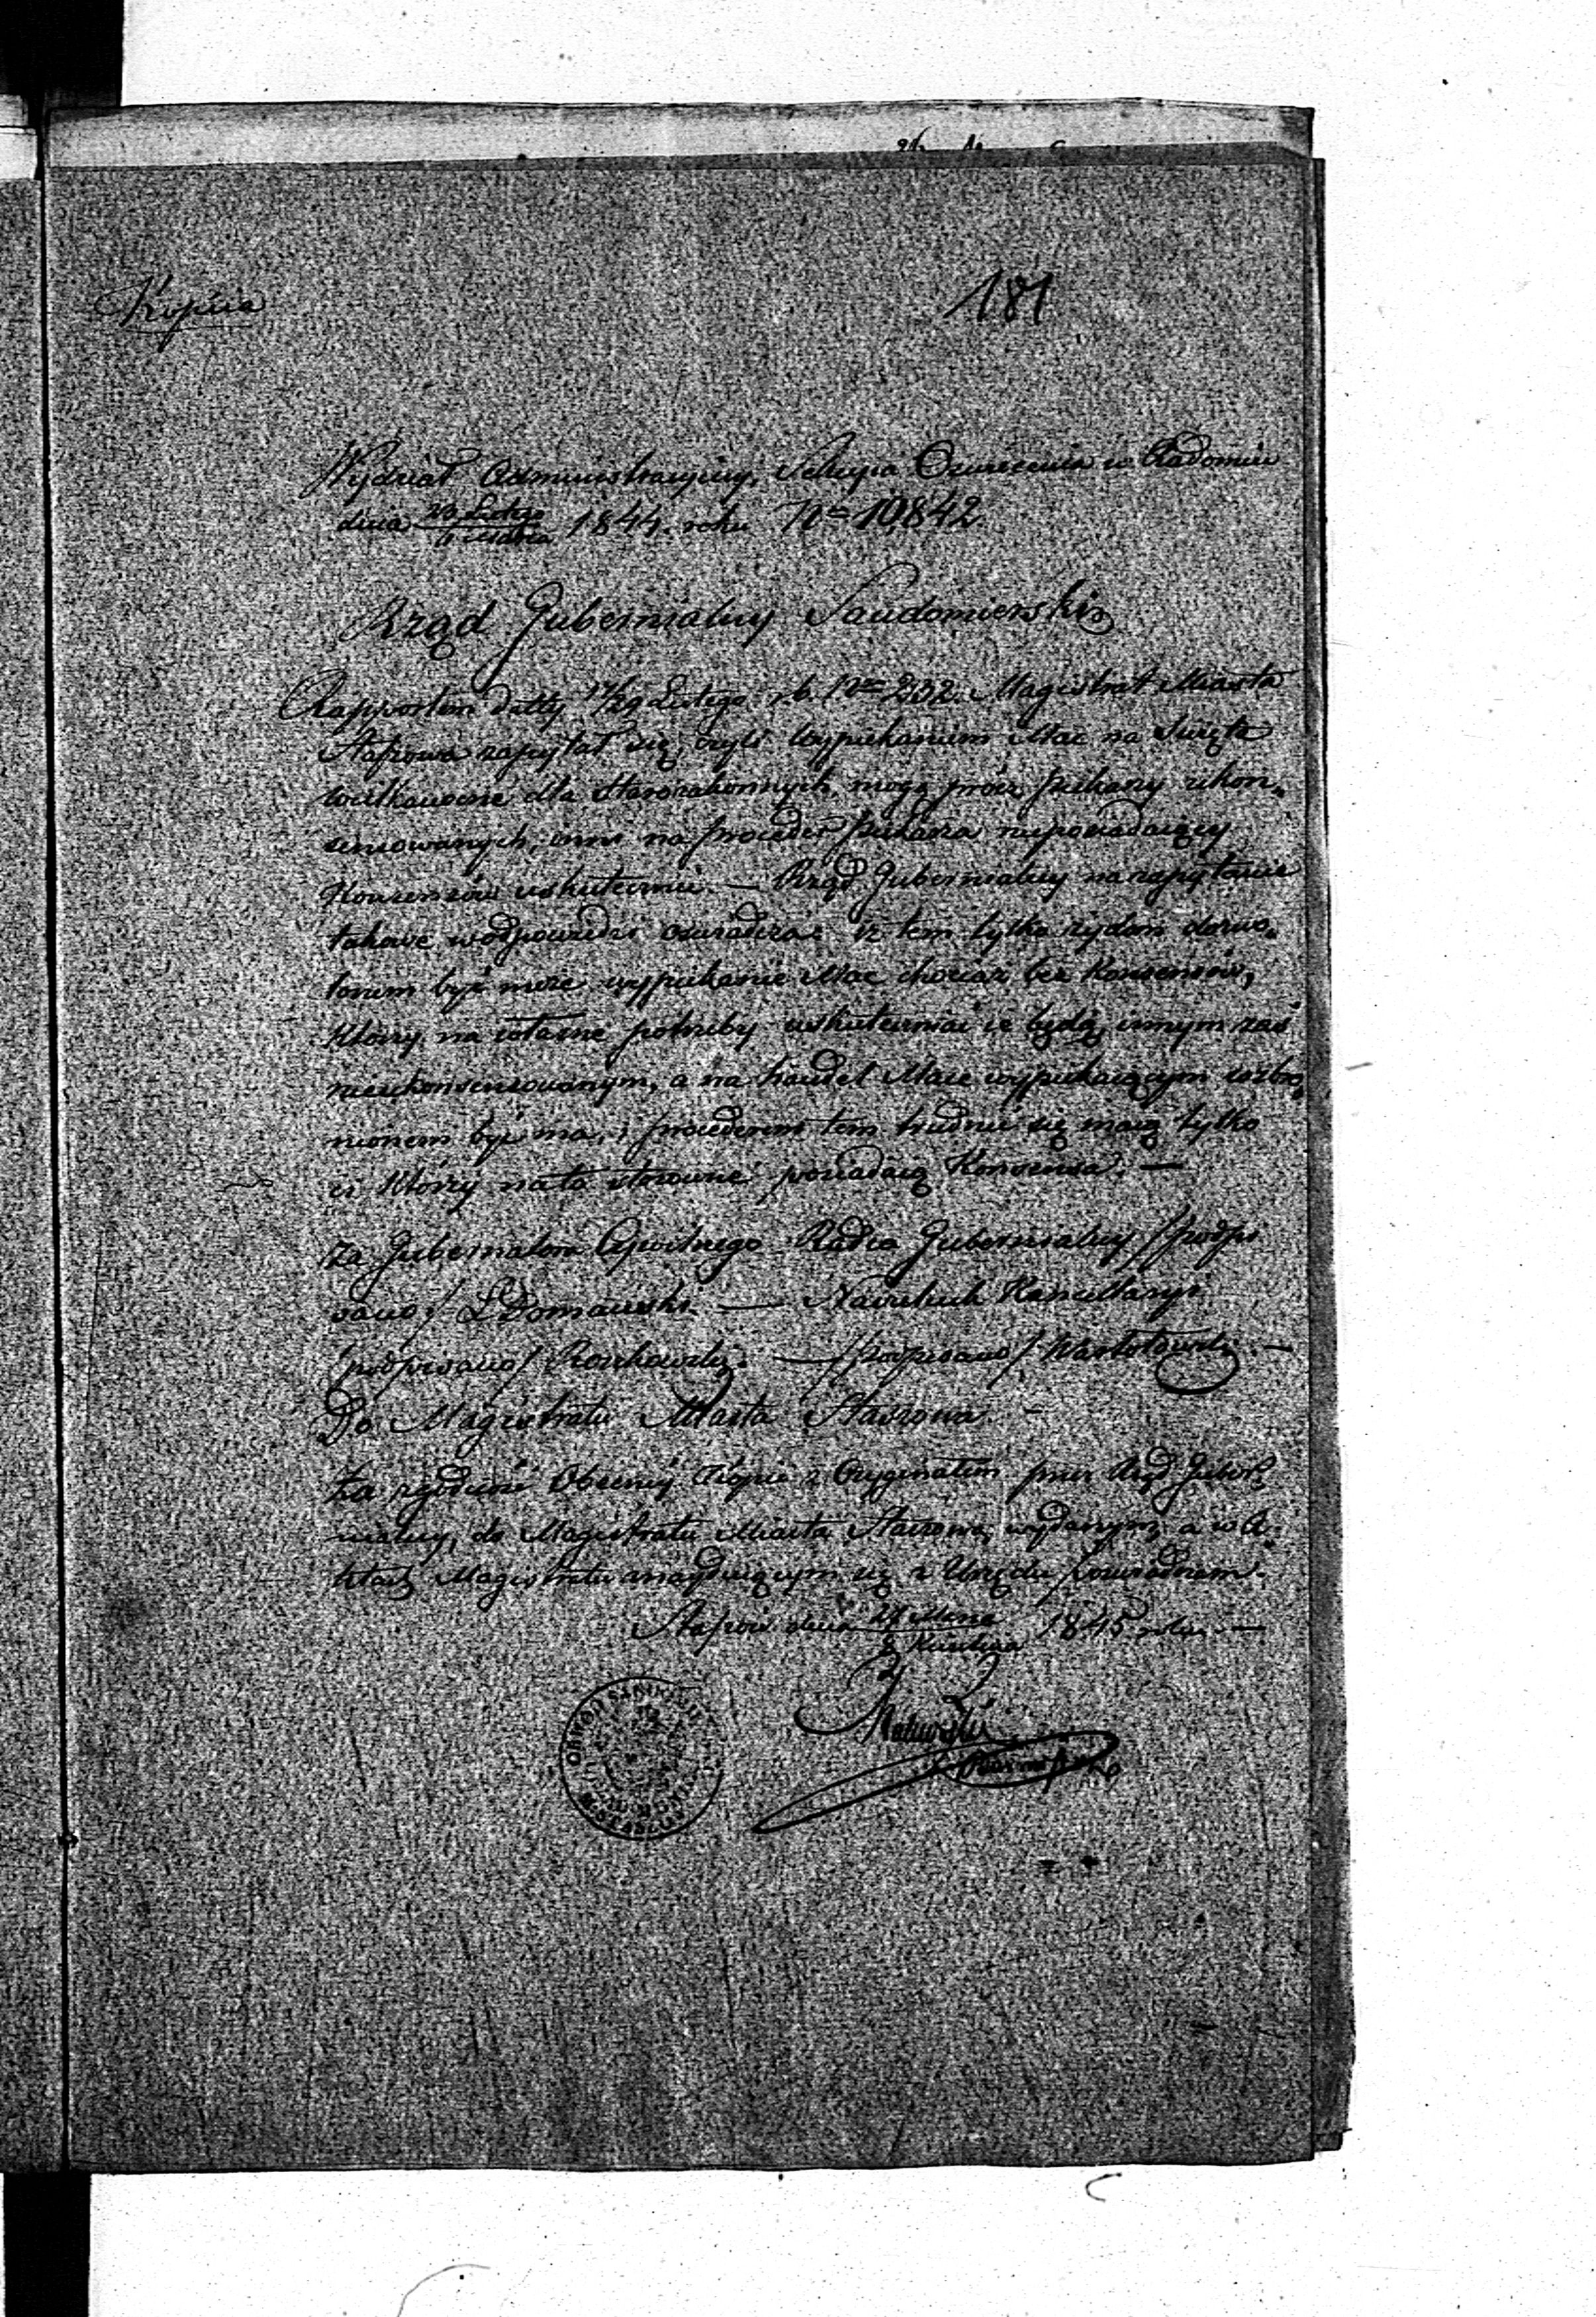 Kopia
181
Wydział Administracyjny, Sekcya w Radomiu
dnia 1844. roku Nro 10842
Rząd Gubernialny Sandomierski
Rapportem datty 17/29 Lutego r.b. Nro 232. Magistrat Miasta
Staszowa zapytał się, czyli wypiekaniem Mac na Święta
wielkanocne dla Starozakonnych, mogą prócz piekarzy ukon„
sensowanych, inni na proceder piekarza nieposiadaiący
Konsensów uskutecznić. — Rząd Gubernialny na zapytanie
takowe w odpowiedzi oświadcza: iż tem tylko żydom dozwo„
lonem być może wypiekanie Mac chociaż bez Konsensów,
Którzy na własne potrzeby uskuteczniać ie będą, innym zaś
nieukonsensowanym, a na handel Mace wypiekaiącym wzbro„
nionem być ma, i procederem tem trudnić się maią tylko
ci Którzy na to stosowne posiadaią Konsensa. —
Za Gubernatora Cywilnego Radca Gubernialny /podpi
sano/ — Naczelnik Kancellaryi
/podpisano/ — /podpisano/
Do Magistratu Miasta Staszowa. —
Za zgodność Obecnej Kopii z Oryginałem przez Rząd Guber„
nialny, do Magistratu Miasta Staszowa, wydanym, a w A„
ktach Magistratu znayduiącym się z Urzędu poświadczam.
Staszów dnia 1845 roku —